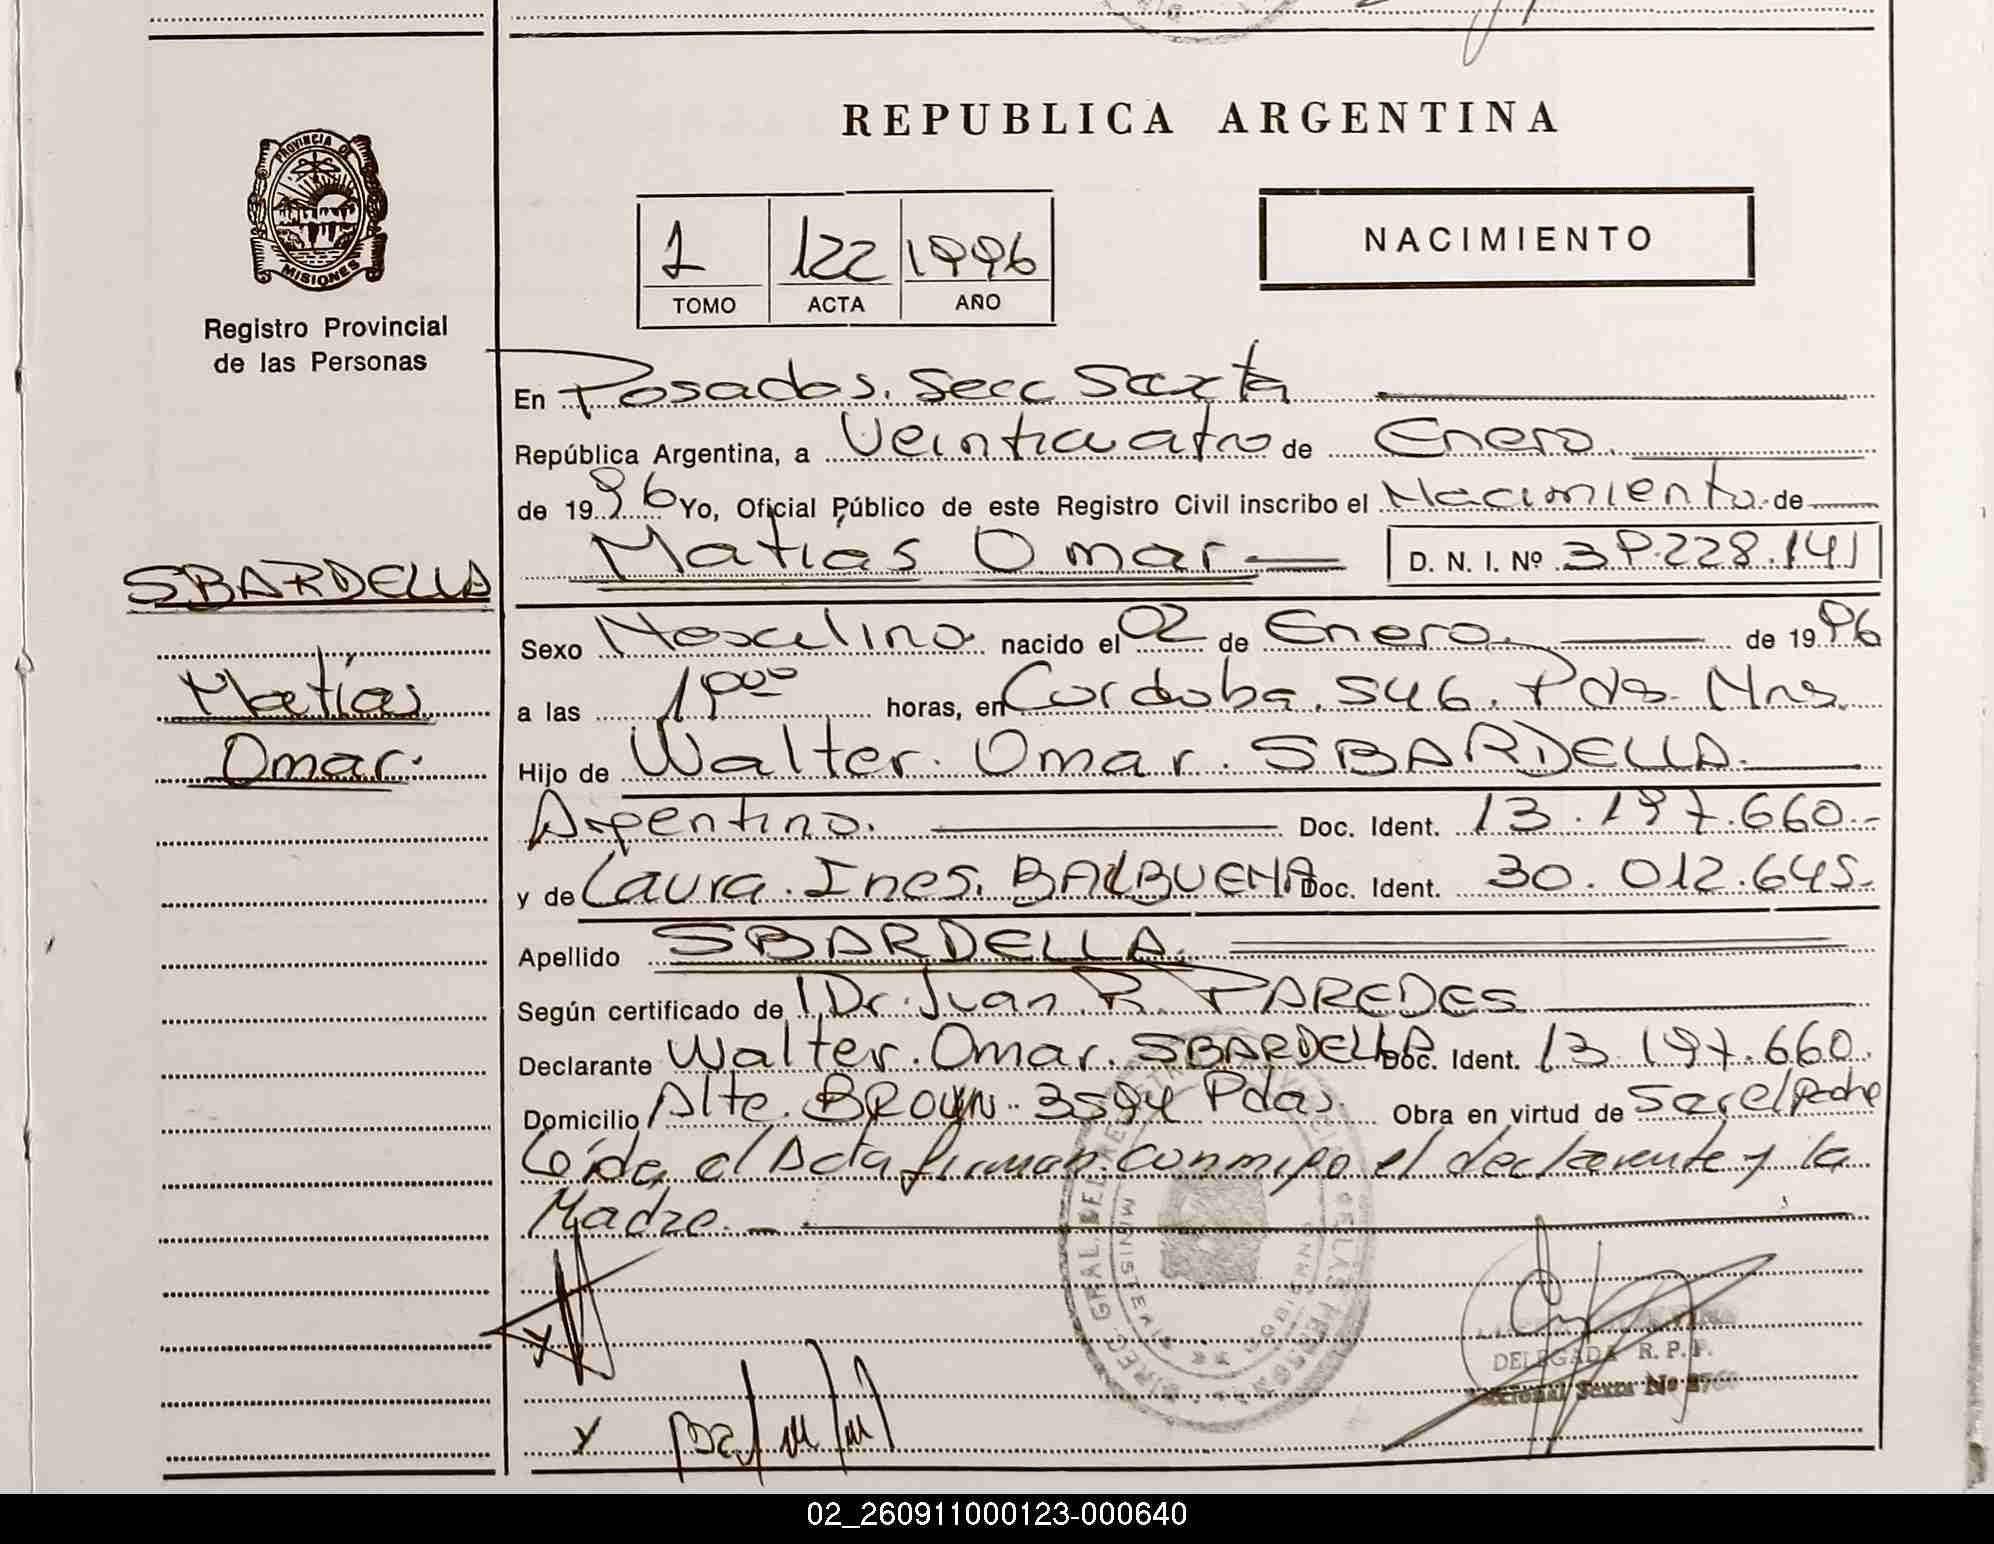 REPUBLICA ARGENTINA
PROVINCIA DE
MISIONES
Registro Provincial
de las Personas
1 122 1996
TOMO ACTA AÑO
NACIMIENTO
En Posadas. Secc Sexta
República Argentina, a Veinticuatro de Enero.
de 1996 Yo, Oficial Público de este Registro Civil inscribo el Nacimiento de
Matías Omar D. N. I. Nº 39.228.141
SBARDELLA
Matías
Omar.
Sexo Masculino nacido el 02 de Enero. de 1996
a las 19 00 horas, en Cordoba. 546. Pds. Mns.
Hijo de Walter. Omar. SBARDELLA.
Argentino. Doc. Ident. 13.197.660.-
y de Laura. Ines. BALBUENA Doc. Ident. 30.012.645.
Apellido SBARDELLA.
Según certificado de Dr. Juan. R. PAREDES
Declarante Walter. Omar. SBARDELLA Doc. Ident. 13.197.660.
Domicilio Alte. BROWN. 3594 Pdas. Obra en virtud de Ser el Padre
Leída el Acta firman conmigo el declarante y la
Madre.-
DIREC. GRAL. DEL REGISTRO PROVINCIAL DE LAS PERSONAS
MINISTERIO GOBIERNO
DELEGADA R. P. P.
x
x
02_260911000123-000640